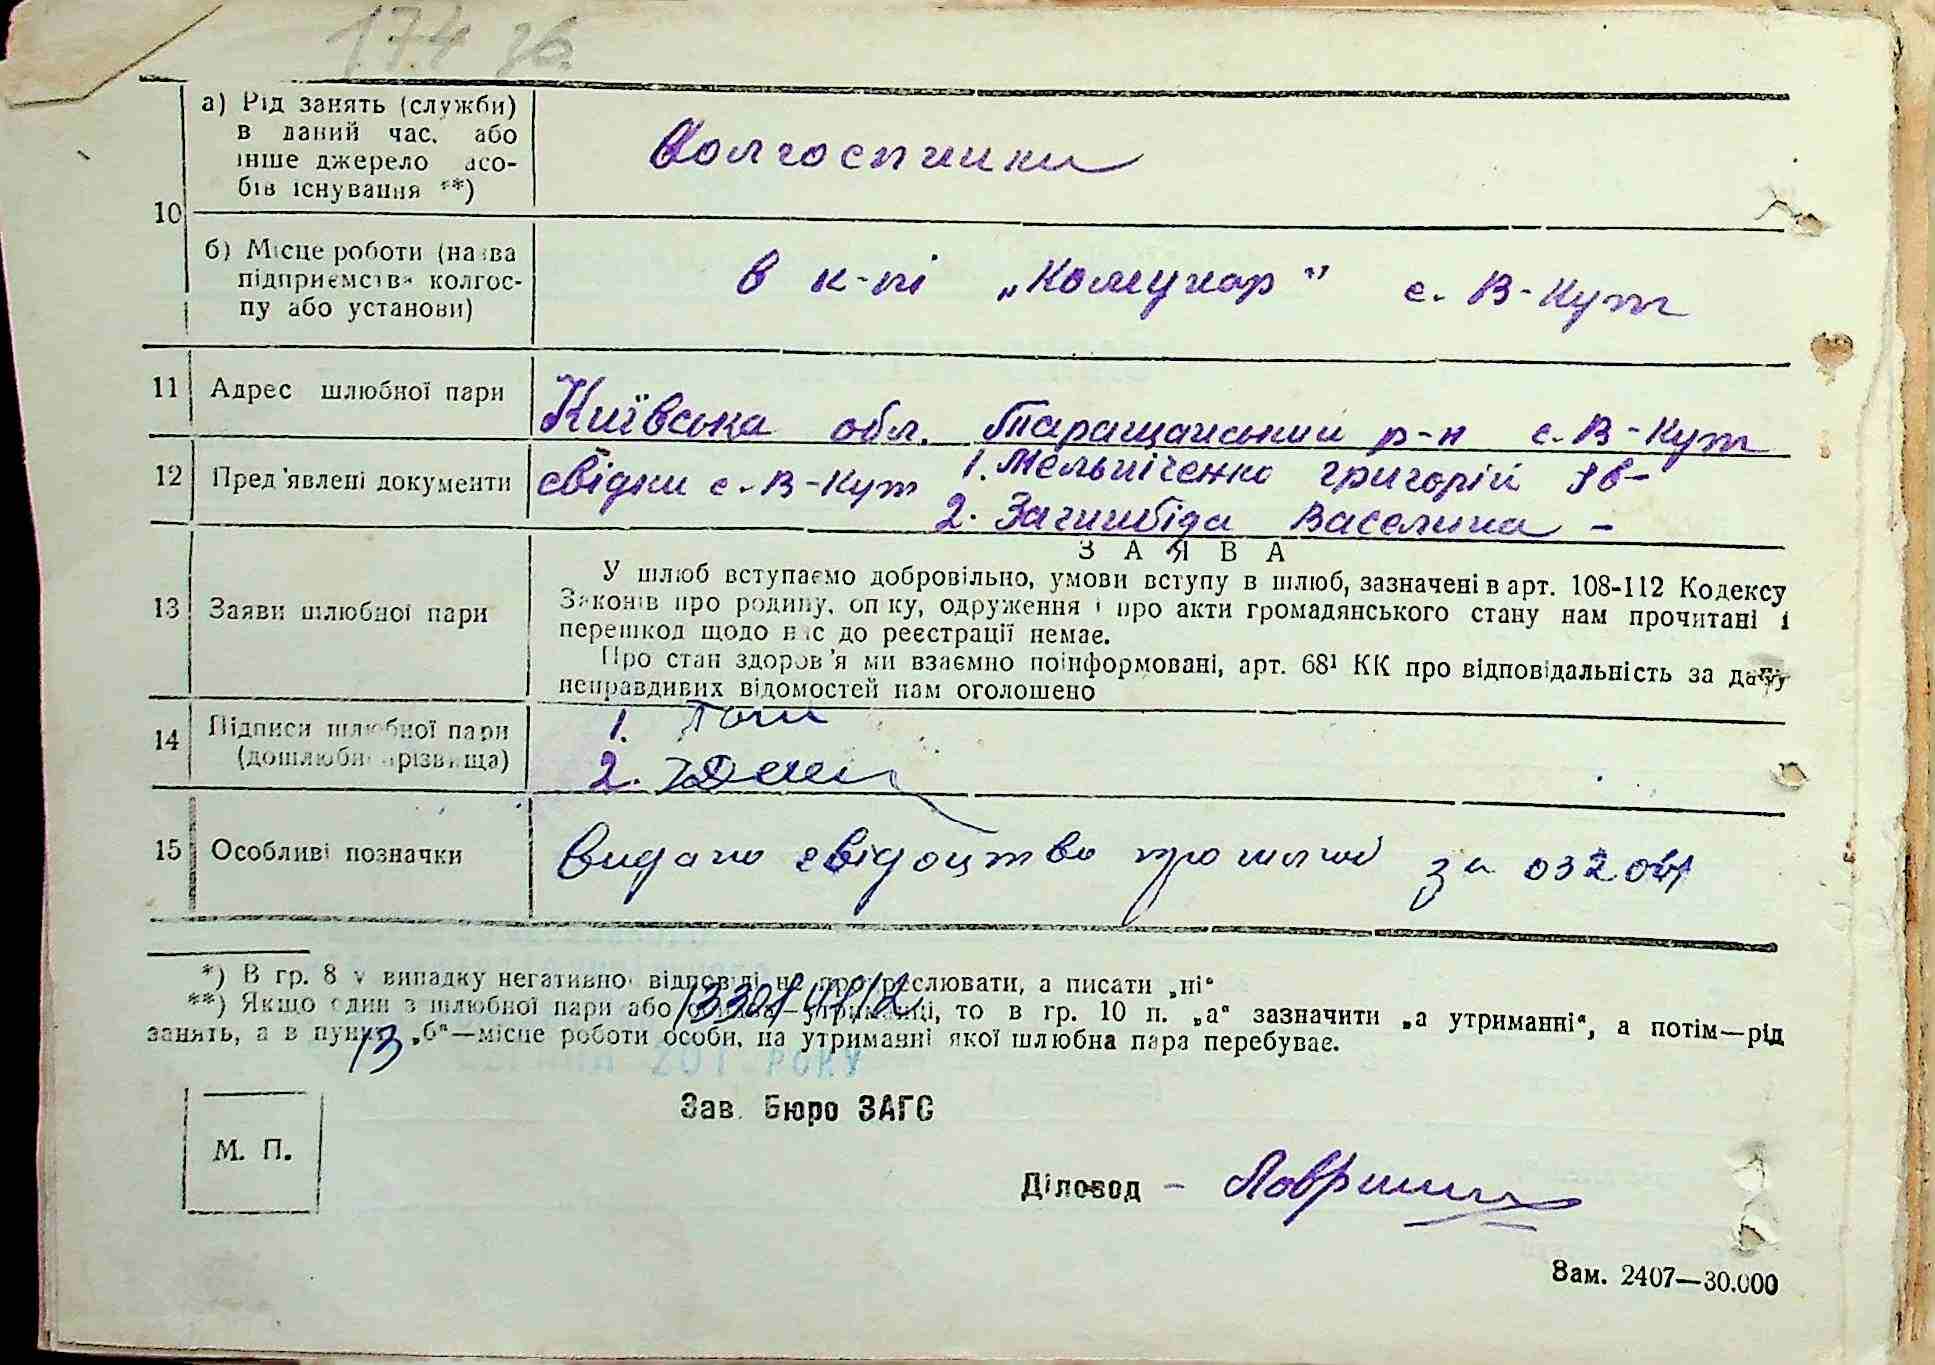 174 зв.
а) Рід занять (служби)
в даний час, або
інше джерело засо-
бів існування **)
Колгоспники
10
б) Місце роботи (назва
підприємства колгос-
пу або установи)
в к-пі „Комунар" с. В-Кут
11 Адрес шлюбної пари
Київська обл. Таращанський р-н с. В-Кут
12 Пред'явлені документи
свідки с. В-Кут 1. Мельніченко григорій
2. Загинбіда Васелина -
ЗАЯВА
13 Заяви шлюбної пари
У шлюб вступаємо добровільно, умови вступу в шлюб, зазначені в арт. 108-112 Кодексу
Законів про родину, опіку, одруження і про акти громадянського стану нам прочитані і
перешкод щодо нас до реєстрації немає.
Про стан здоров'я ми взаємно поінформовані, арт. 68¹ КК про відповідальність за дачу
неправдивих відомостей нам оголошено
14 Підписи шлюбної пари
(дошлюбні прізвища)
1.
2.
15 Особливі позначки
Видано свідоцтво про шлюб за 032041
*) В гр. 8 у випадку негативної відповіді не прокреслювати, а писати „ні"
**) Якщо один з шлюбної пари або обидва—утриманці, то в гр. 10 п. „а" зазначити „а утриманні", а потім—рід
занять, а в пункті „б"—місце роботи особи, на утриманні якої шлюбна пара перебуває.
13
201 РОКУ
Зав. Бюро ЗАГС
М. П.
Діловод -
Зам. 2407—30.000